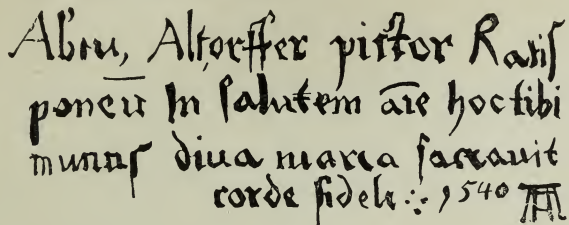 Abtu, Altorffer pictor Ratis
ponēn In salutem aīe hoc tibi
munus diua maria sacrauit
corde fideli ∴ 1540 AA